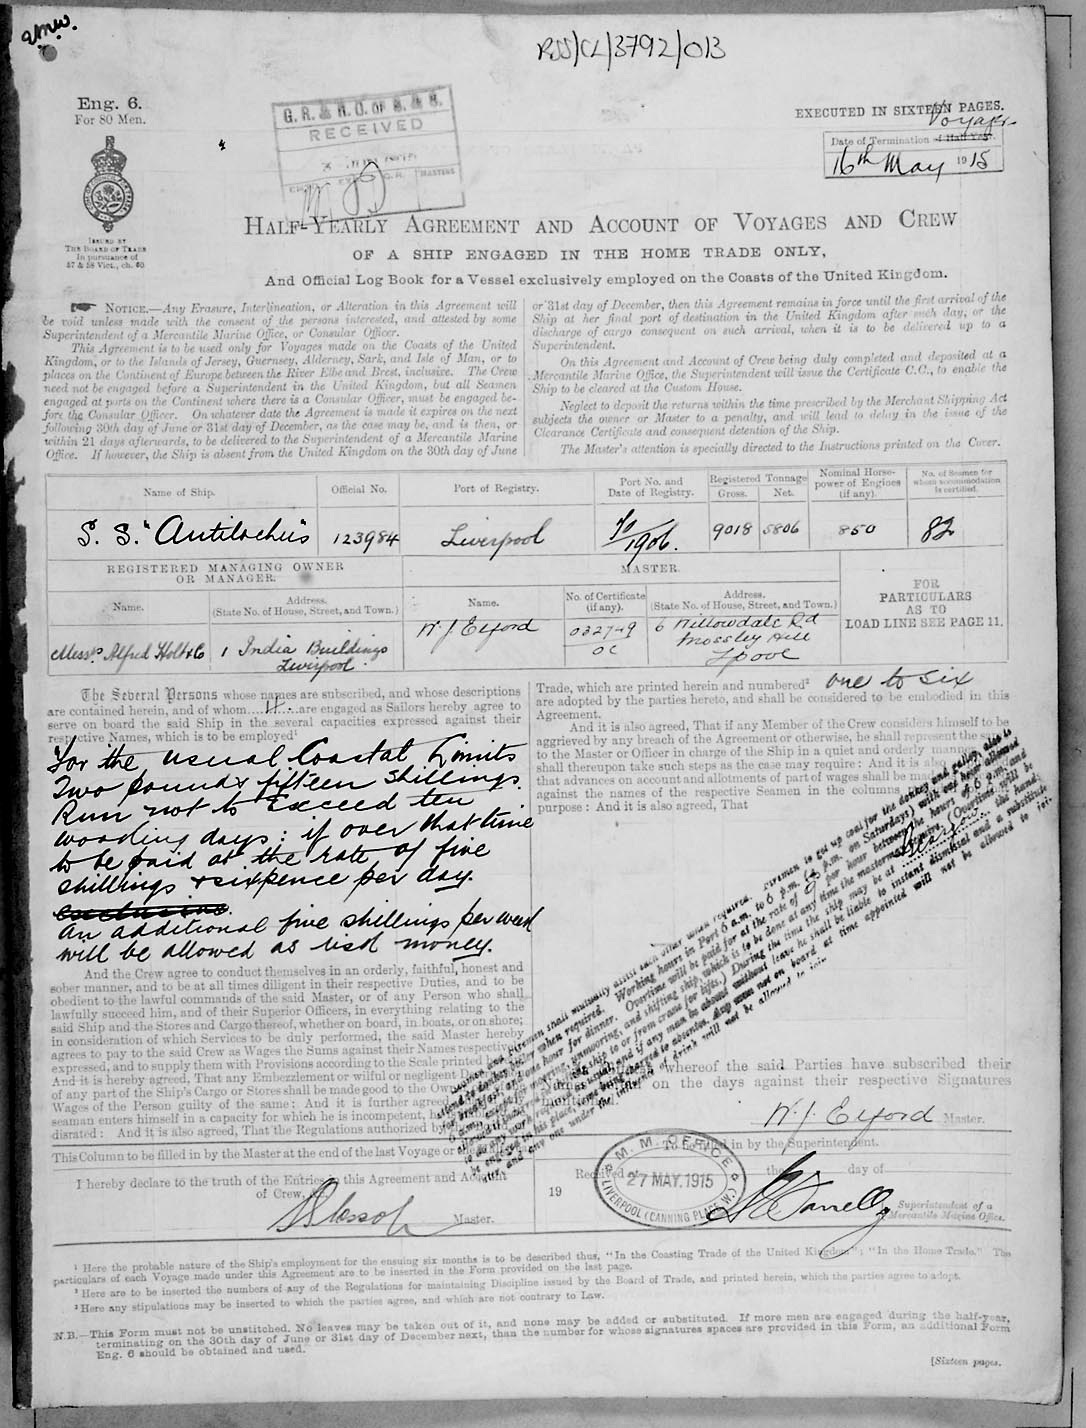 RSS/CL/3792/013
Eng. 6.
For 80 Men.
ISSUED BY
THE BOARD OF TRADE
In pursuance of
57 & 58 Vict., ch. 60.
RECEIVED
EXECUTED IN SIXTEEN PAGES.
Voyage
Date of Termination of Half Year.
16th May 1915
HALF-YEARLY AGREEMENT AND ACCOUNT OF VOYAGES AND CREW
OF A SHIP ENGAGED IN THE HOME TRADE ONLY,
And Official Log Book for a Vessel exclusively employed on the Coasts of the United Kingdom.
NOTICE.—Any Erasure, Interlineation, or Alteration in this Agreement will
be void unless made with the consent of the persons interested, and attested by some
Superintendent of a Mercantile Marine Office, or Consular Officer.
This Agreement is to be used only for Voyages made on the Coasts of the United
Kingdom, or to the Islands of Jersey, Guernsey, Alderney, Sark, and Isle of Man, or to
places on the Continent of Europe between the River Elbe and Brest, inclusive. The Crew
need not be engaged before a Superintendent in the United Kingdom, but all Seamen
engaged at ports on the Continent where there is a Consular Officer, must be engaged be-
fore the Consular Officer. On whatever date the Agreement is made it expires on the next
following 30th day of June or 31st day of December, as the case may be, and is then, or
within 21 days afterwards, to be delivered to the Superintendent of a Mercantile Marine
Office. If however, the Ship is absent from the United Kingdom on the 30th day of June
or 31st day of December, then this Agreement remains in force until the first arrival of the
Ship at her final port of destination in the United Kingdom after such day, or the
discharge of cargo consequent on such arrival, when it is to be delivered up to a
Superintendent.
On this Agreement and Account of Crew being duly completed and deposited at a
Mercantile Marine Office, the Superintendent will issue the Certificate C.C., to enable the
Ship to be cleared at the Custom House.
Neglect to deposit the returns within the time prescribed by the Merchant Shipping Act
subjects the owner or Master to a penalty, and will lead to delay in the issue of the
Clearance Certificate and consequent detention of the Ship.
The Master's attention is specially directed to the Instructions printed on the Cover.
Name of Ship. Official No. Port of Registry. Port No. and Date of Registry. Registered Tonnage Gross. Net. Nominal Horse-power of Engines (if any). No. of Seamen for whom accommodation is certified.
S. S. "Antilochus" 123984 Liverpool 70/1906. 9018 5806 850 82
REGISTERED MANAGING OWNER
OR MANAGER.
MASTER.
Name. Address. (State No. of House, Street, and Town.) Name. No. of Certificate (if any). Address. (State No. of House, Street, and Town.)
FOR
PARTICULARS
AS TO
LOAD LINE SEE PAGE 11.
Messrs Alfred Holt & Co 1 India Buildings Liverpool. W. J. Elford 032749 OC 6 Willowdale Rd Mossley Hill L'pool
The Several Persons whose names are subscribed, and whose descriptions
are contained herein, and of whom 4 are engaged as Sailors hereby agree to
serve on board the said Ship in the several capacities expressed against their
respective Names, which is to be employed¹
For the usual Coastal Limits
Two pounds fifteen shillings.
Run not to exceed ten
working days: if over that time
to be paid at the rate of five
shillings & sixpence per day.
exclusive.
An additional five shillings per week
will be allowed as risk money.
And the Crew agree to conduct themselves in an orderly, faithful, honest and
sober manner, and to be at all times diligent in their respective Duties, and to be
obedient to the lawful commands of the said Master, or of any Person who shall
lawfully succeed him, and of their Superior Officers, in everything relating to the
said Ship and the Stores and Cargo thereof, whether on board, in boats, or on shore;
in consideration of which Services to be duly performed, the said Master hereby
agrees to pay to the said Crew as Wages the Sums against their Names respectively
expressed, and to supply them with Provisions according to the Scale printed
And it is hereby agreed, That any Embezzlement or wilful or negligent
of any part of the Ship's Cargo or Stores shall be made good to the
Wages of the Person guilty of the same: And it is further agreed,
seaman enters himself in a capacity for which he is incompetent, he
disrated: And it is also agreed, That the Regulations authorized by
Trade, which are printed herein and numbered² one to six
are adopted by the parties hereto, and shall be considered to be embodied in this
Agreement.
And it is also agreed, That if any Member of the Crew considers himself to be
aggrieved by any breach of the Agreement or otherwise, he shall represent the same
to the Master or Officer in charge of the Ship in a quiet and orderly manner
shall thereupon take such steps as the case may require: And it is also
that advances on account and allotments of part of wages shall be
against the names of the respective Seamen in the columns
purpose: And it is also agreed, That
whereof the said Parties have subscribed their
on the days against their respective Signatures
W. J. Elford Master.
This Column to be filled in by the Master at the end of the last Voyage or
I hereby declare to the truth of the Entries in this Agreement and Account
of Crew,
Master.
in by the Superintendent.
Received the day of
19
M. M. SERVICE
27 MAY.1915
LIVERPOOL (CANNING PLACE W.)
Superintendent of a
Mercantile Marine Office.
¹ Here the probable nature of the Ship's employment for the ensuing six months is to be described thus, "In the Coasting Trade of the United Kingdom"; "In the Home Trade." The
particulars of each Voyage made under this Agreement are to be inserted in the Form provided on the last page.
² Here are to be inserted the numbers of any of the Regulations for maintaining Discipline issued by the Board of Trade, and printed herein, which the parties agree to adopt.
³ Here any stipulations may be inserted to which the parties agree, and which are not contrary to Law.
N.B.—This Form must not be unstitched. No leaves may be taken out of it, and none may be added or substituted. If more men are engaged during the half-year,
terminating on the 30th day of June or 31st day of December next, than the number for whose signatures spaces are provided in this Form, an additional Form
Eng. 6 should be obtained and used.
[Sixteen pages.